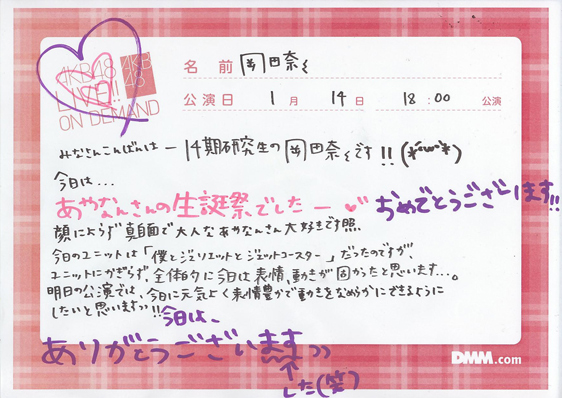 AKB48
LIVE!!
ON DEMAND
AKB
48
名 前 岡田奈々
公演日 1 月 14 日 18 : 00 公演
みなさんこんばんはー14期研究生の岡田奈々です!!(*´ω`*)
今日は...
あやなんさんの生誕祭でしたー♥♡ おめでとうございます!!
顔によらず真面目で大人なあやなんさん大好きです照
今日のユニットは「僕とジュリエットとジェットコースター」だったのですが、
ユニットにかぎらず、全体的に今日は表情、動きが固かったと思います...。
明日の公演では、今日に元気よく表情豊かで動きをなめらかにできるように
したいと思います!! 今日は、
ありがとうございます
した(笑)
DMM.com